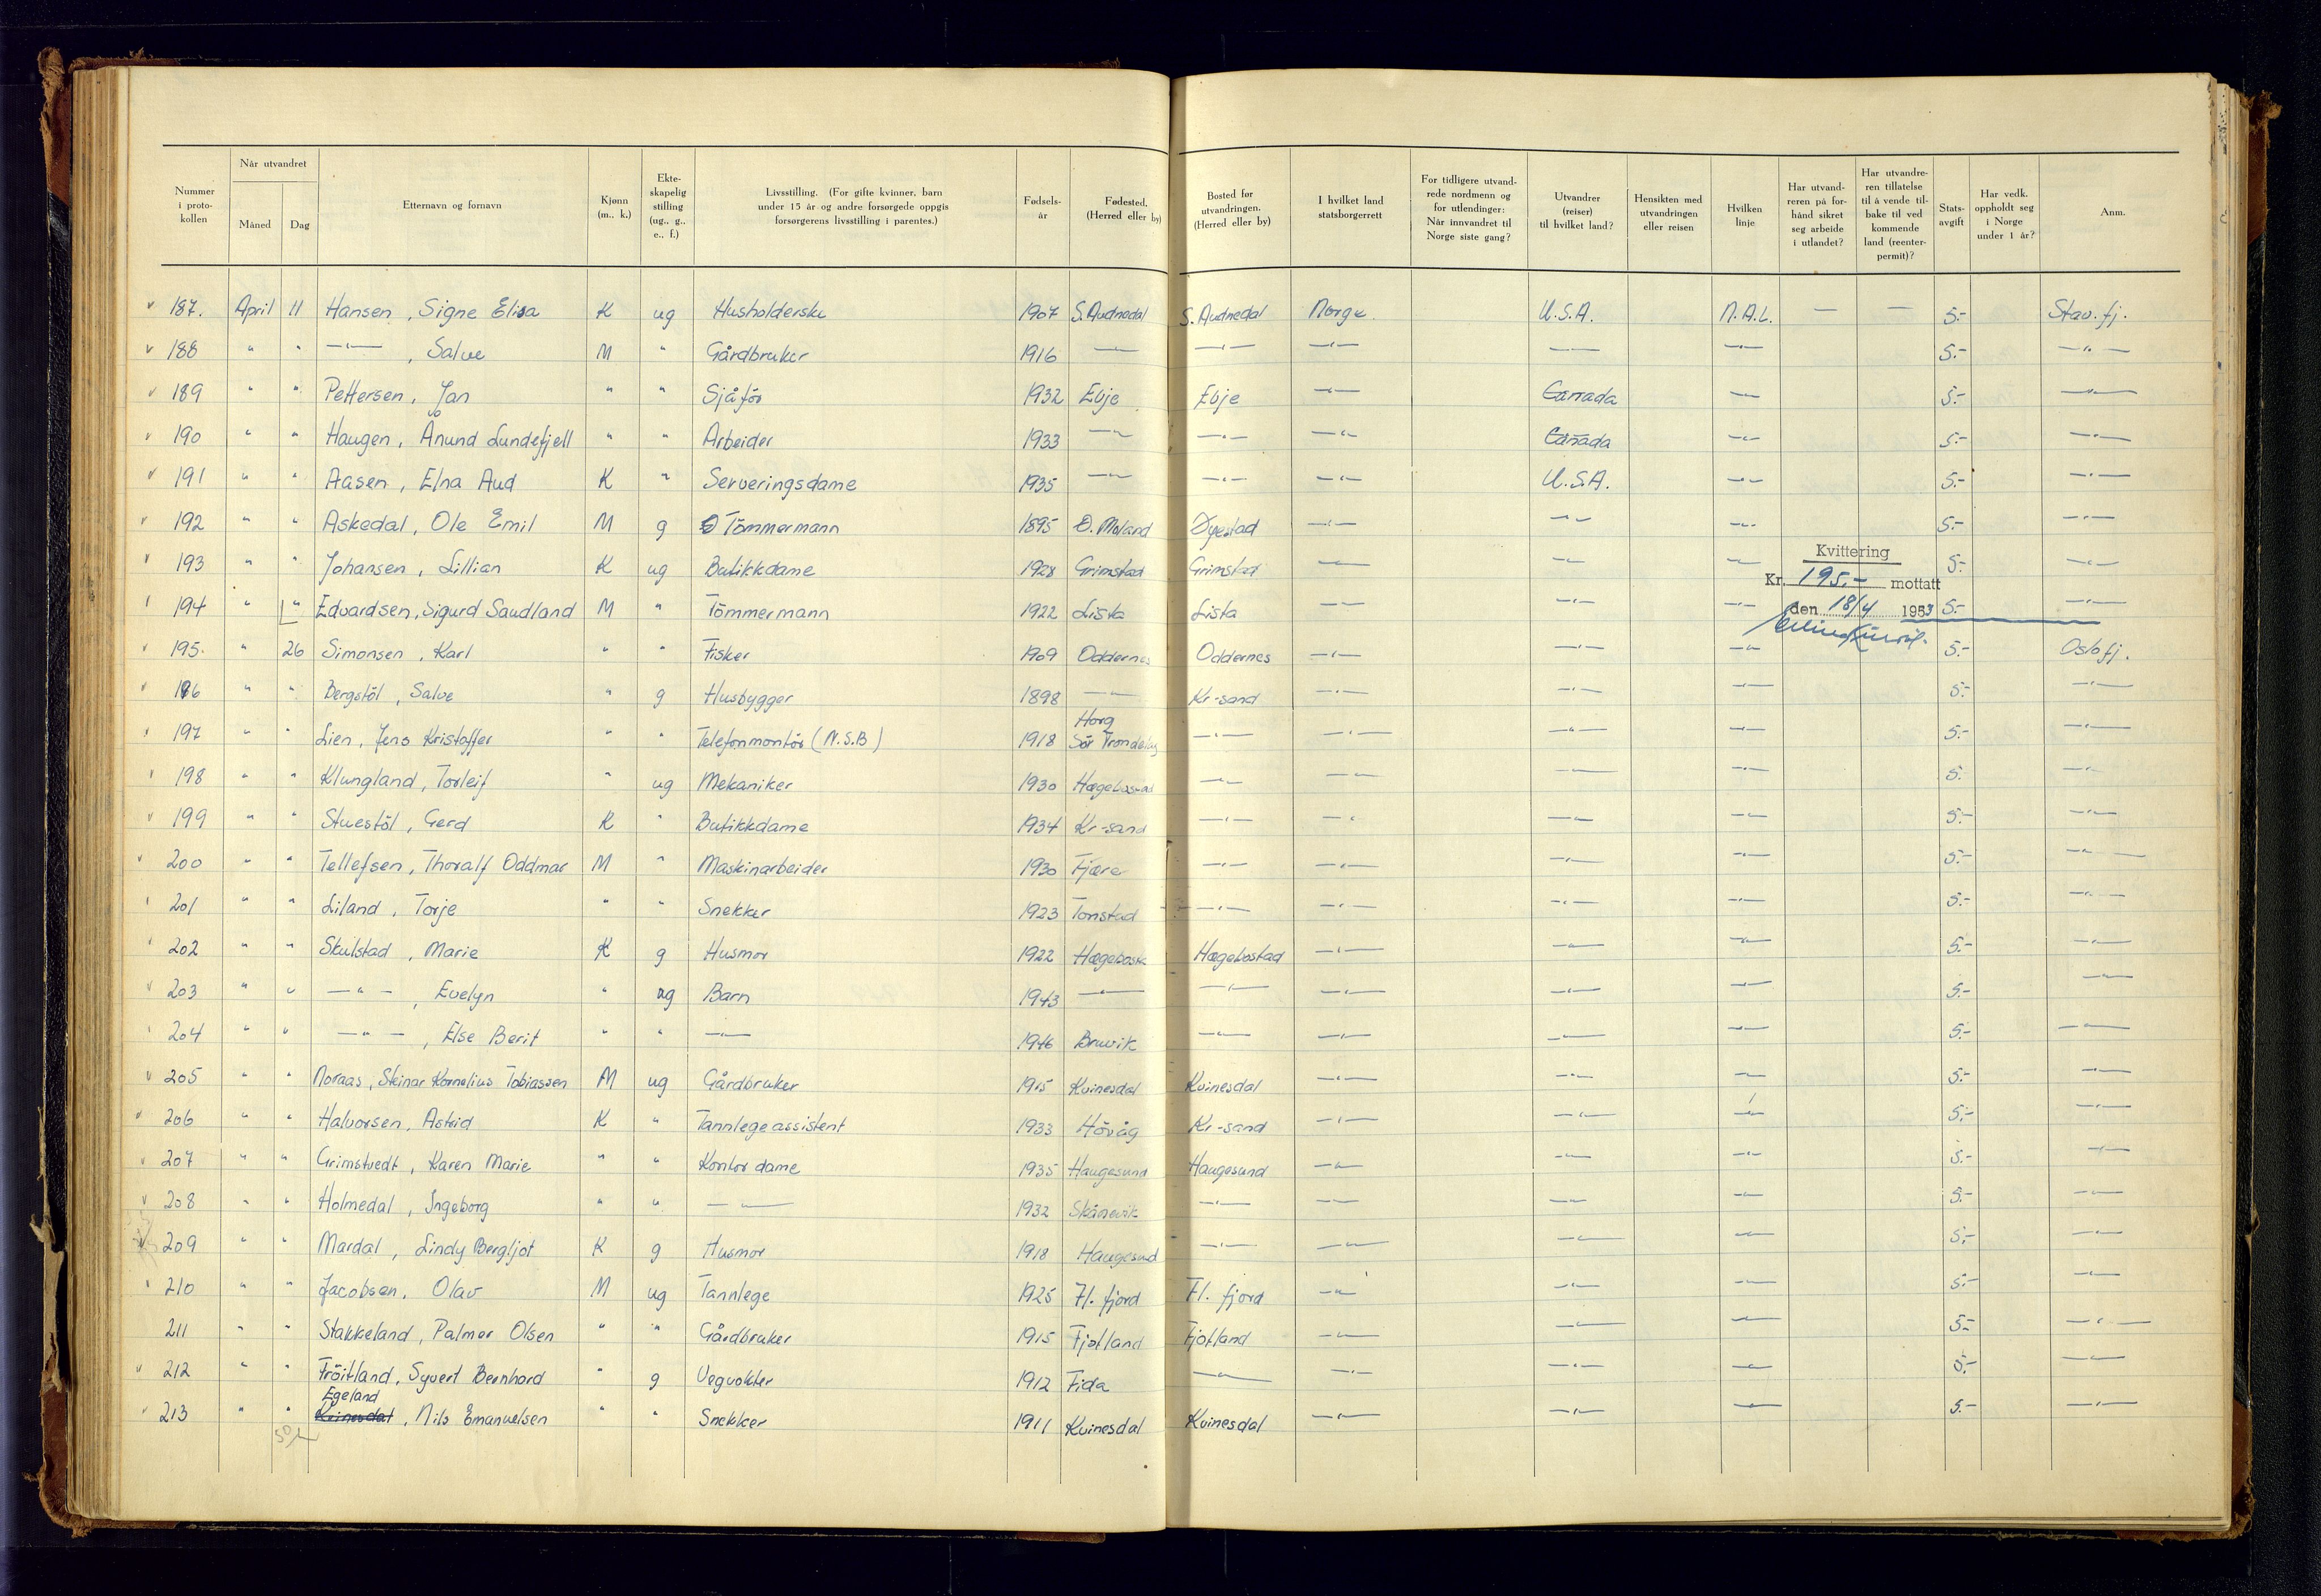 Nummer i proto-kollen | Når utvandret Måned | Dag | Etternavn og fornavn | Kjønn (m., k.) | Ekte-skapelig stilling (ug., g., e., f.) | Livsstilling. (For gifte kvinner, barn under 15 år og andre forsørgede oppgis forsørgerens livsstilling i parentes.) | Fødsels-år | Fødested. (Herred eller by) | Bosted før utvandringen. (Herred eller by) | I hvilket land statsborgerrett | For tidligere utvand-rede nordmenn og for utlendinger: Når innvandret til Norge siste gang? | Utvandrer (reiser) til hvilket land? | Hensikten med utvandringen eller reisen | Hvilken linje | Har utvand-reren på for-hånd sikret seg arbeide i utlandet? | Har utvandre-ren tillatelse til å vende til-bake til ved kommende land (reenter-permit)? | Stats-avgift | Har vedk. oppholdt seg i Norge under 1 år? | Anm.
187. April 11 Hansen, Signe Elisa K ug Husholderske 1907 S. Audnedal S. Audnedal Norge U.S.A. N.A.L. — — 5.- Stav.fj.
188 " " —"— , Salve M " Gårdbruker 1916 —"— —"— —"— —"— —"— 5.- —"—
189 " " Pettersen, Jan " " Sjåför 1932 Evje Evje —"— Canada —"— 5.- —"—
190 " " Haugen, Ånund Lundefjell " " Arbeider 1933 —"— —"— —"— Canada —"— 5.- —"—
191 " " Aasen, Elna Aud K " Serveringsdame 1935 —"— —"— —"— U.S.A. —"— 5.- —"—
192 " " Askedal, Ole Emil M g Tömmermann 1895 Ø. Moland Øyestad —"— —"— —"— 5.- —"—
193 " " Johansen, Lillian K ug Butikkdame 1928 Grimstad Grimstad —"— —"— —"— 5.- —"—
Kvittering
Kr. 195.- mottatt
194 " " Edvardsen, Sigurd Saudland M " Tömmermann 1922 Lista Lista —"— —"— —"— 5.- —"—
den 18/4 1953
195. " 26 Simonsen, Karl " " Fisker 1909 Oddernes Oddernes —"— —"— —"— 5.- Oslofj.
196 " " Bergstöl, Salve " g Husbygger 1898 —"— Kr-sand —"— —"— —"— 5.- —"—
197 " " Lien, Jens Kristoffer " " Telefonmontör (N.S.B) 1918 Horg Sör Trondelag —"— —"— —"— —"— 5.- —"—
198 " " Klungland, Torleif " ug Mekaniker 1930 Hægebostad —"— —"— —"— —"— 5.- —"—
199 " " Stuestöl, Gerd K " Butikkdame 1934 Kr-sand —"— —"— —"— —"— 5.- —"—
200 " " Tellefsen, Thoralf Oddmar M " Maskinarbeider 1930 Fjære —"— —"— —"— —"— 5.- —"—
201 " " Liland, Torje " " Snekker 1923 Tonstad —"— —"— —"— —"— 5.- —"—
202 " " Skulstad, Marie K g Husmor 1922 Hægebosta Hægebostad —"— —"— —"— 5.- —"—
203 " " —"— , Evelyn " ug Barn 1943 —"— —"— —"— —"— —"— 5.- —"—
204 " " —"— , Else Berit " " —"— 1946 Bruvik —"— —"— —"— —"— 5.- —"—
205 " " Noraas, Steinar Kornelius Tobiassen M ug Gårdbruker 1915 Kvinesdal Kvinesdal —"— —"— —"— 5.- —"—
206 " " Halvorsen, Astrid K " Tannlegeassistent 1933 Hövåg Kr-sand —"— —"— —"— 5.- —"—
207 " " Grimstvedt, Karen Marie " " Kontordame 1935 Haugesund Haugesund —"— —"— —"— 5.- —"—
208 " " Holmedal, Ingeborg " " —"— 1932 Skånevik —"— —"— —"— —"— 5.- —"—
209 " " Mardal, Lindy Bergljot K g Husmor 1918 Haugesund —"— —"— —"— —"— 5.- —"—
210 " " Jacobsen, Olav M ug Tannlege 1925 Fl. fjord Fl. fjord —"— —"— —"— 5.- —"—
211 " " Stakkeland, Palmer Olsen " " Gårdbruker 1915 Fjotland Fjotland —"— —"— —"— 5.- —"—
212 " " Fröitland, Syvert Bernhard " g Vegvokter 1912 Fida —"— —"— —"— —"— 5.- —"—
Egeland
213 " " Kvinesdal, Nils Emanuelsen " " Snekker 1911 Kvinesdal Kvinesdal —"— —"— —"— 5.- —"—